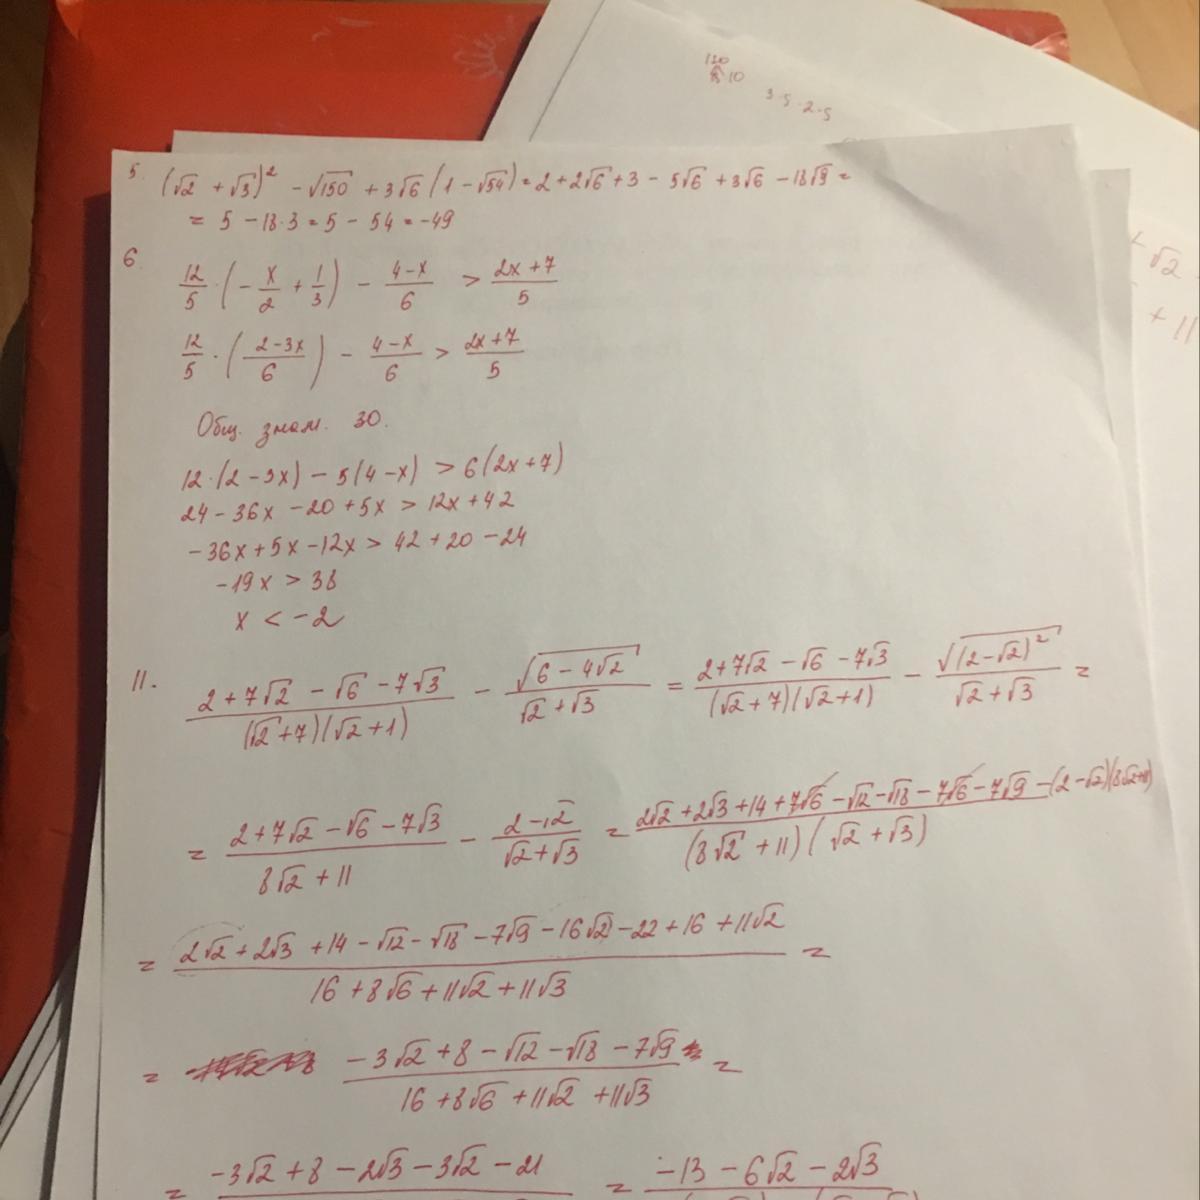 120
10
3·5·2·5
5. (√2 + √3)² - √150 + 3√6 (1 - √54) = 2 + 2√6 + 3 - 5√6 + 3√6 - 18√9 =
= 5 - 18·3 = 5 - 54 = -49
6. 12/5 · (-x/2 + 1/3) - (4-x)/6 > (2x+7)/5
12/5 · ((2-3x)/6) - (4-x)/6 > (2x+7)/5
Общ. знам. 30.
12·(2-3x) - 5(4-x) > 6(2x+7)
24 - 36x - 20 + 5x > 12x + 42
-36x + 5x - 12x > 42 + 20 - 24
-19x > 38
x < -2
11. (2 + 7√2 - √6 - 7√3)/((√2+7)(√2+1)) - √(6-4√2)/(√2+√3) = (2+7√2-√6-7√3)/((√2+7)(√2+1)) - √((2-√2)²)/(√2+√3) =
= (2+7√2-√6-7√3)/(8√2+11) - (2-√2)/(√2+√3) = (2√2+2√3+14+7√6-√12-√18-7√6-7√9-(2-√2)(8√2+11))/((8√2+11)(√2+√3))
= (2√2+2√3+14-√12-√18-7√9-16√2-22+16+11√2)/(16+8√6+11√2+11√3) =
= (-3√2+8-√12-√18-7√9)/(16+8√6+11√2+11√3) =
= -3√2+8-2√3-3√2-21 = -13-6√2-2√3
√2
+ 11